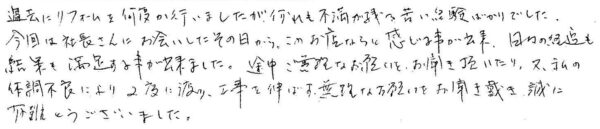 過去にリフォームを何度か行いましたが何れも不満が残る苦い経験ばかりでした。
今回は社長さんにお会いしたその日から、このお店ならと感じる事が出来、日々の経過も
結果も満足する事が出来ました。途中ご無理なお願いをお聞き頂いたり、又、私の
体調不良により2度に渡り、工事を伸ばす無理なお願いをお聞き戴き、誠に
有難とうございました。